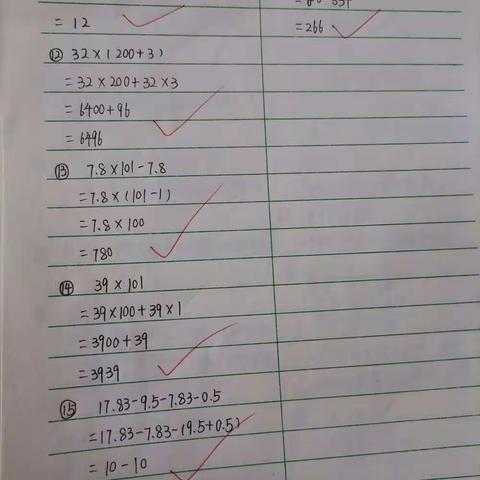 = 12
= 266
⑫ 32×(200+3)
=32×200+32×3
=6400+96
=6496
⑬ 7.8×101-7.8
=7.8×(101-1)
=7.8×100
=780
⑭ 39×101
=39×100+39×1
=3900+39
=3939
⑮ 17.83-9.5-7.83-0.5
=17.83-7.83-(9.5+0.5)
=10-10